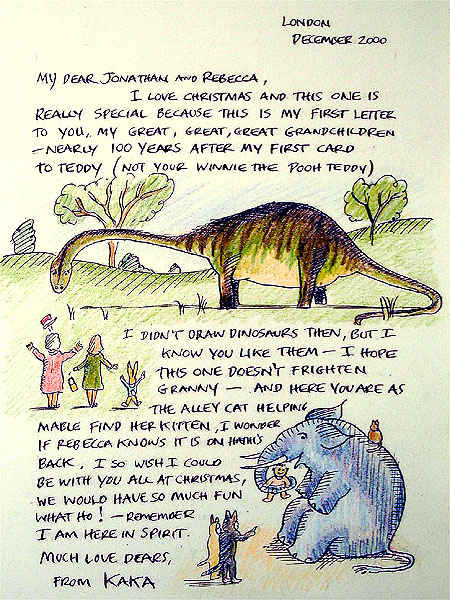 LONDON
DECEMBER 2000
MY DEAR JONATHAN AND REBECCA,
I LOVE CHRISTMAS AND THIS ONE IS
REALLY SPECIAL BECAUSE THIS IS MY FIRST LETTER
TO YOU, MY GREAT, GREAT, GREAT GRANDCHILDREN
– NEARLY 100 YEARS AFTER MY FIRST CARD
TO TEDDY (NOT YOUR WINNIE THE POOH TEDDY)
I DIDN'T DRAW DINOSAURS THEN, BUT I
KNOW YOU LIKE THEM – I HOPE
THIS ONE DOESN'T FRIGHTEN
GRANNY – AND HERE YOU ARE AS
THE ALLEY CAT HELPING
MABLE FIND HER KITTEN, I WONDER
IF REBECCA KNOWS IT IS ON HATHI'S
BACK, I SO WISH I COULD
BE WITH YOU ALL AT CHRISTMAS,
WE WOULD HAVE SO MUCH FUN
WHAT HO! – REMEMBER
I AM HERE IN SPIRIT.
MUCH LOVE DEARS,
FROM KAKA